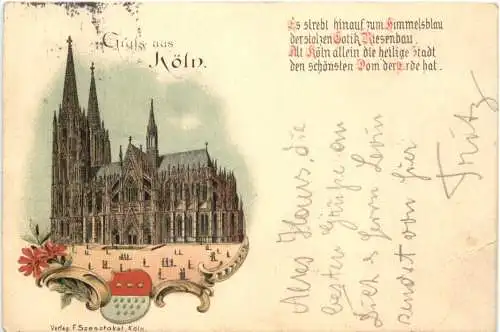 Gruss aus
Köln.
Es strebt hinauf zum Himmelsblau
der stolzen Gotik Riesenbau.
Alt Köln allein die heilige Stadt
den schönsten Dom der Erde hat.
Altes Haus, die
besten Grüße an
Dich & Herrn
sendet von hier
Fritz
Verlag F. Szesztokat, Köln.